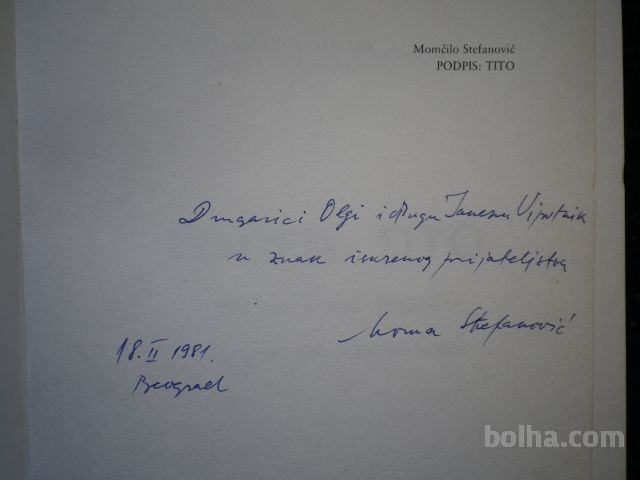 Momčilo Stefanović
PODPIS: TITO
Drugarici Olgi i drugu Janezu Vipotnik
u znak iskrenog prijateljstva
Moma Stefanović
18. II 1981.
Beograd
bolha.com